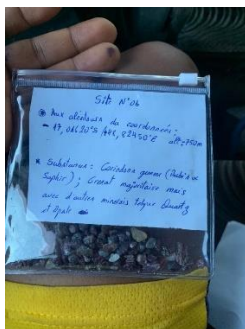 Site N°06
Aux alentours du coordonnées :
- 17,08630°S / 48,82450°E alt: 750m
Substances : Corindons gemme (Rubis ou
Saphir) ; Grenat majoritaire mais
avec d'autres minerais telque Quartz
et Opale